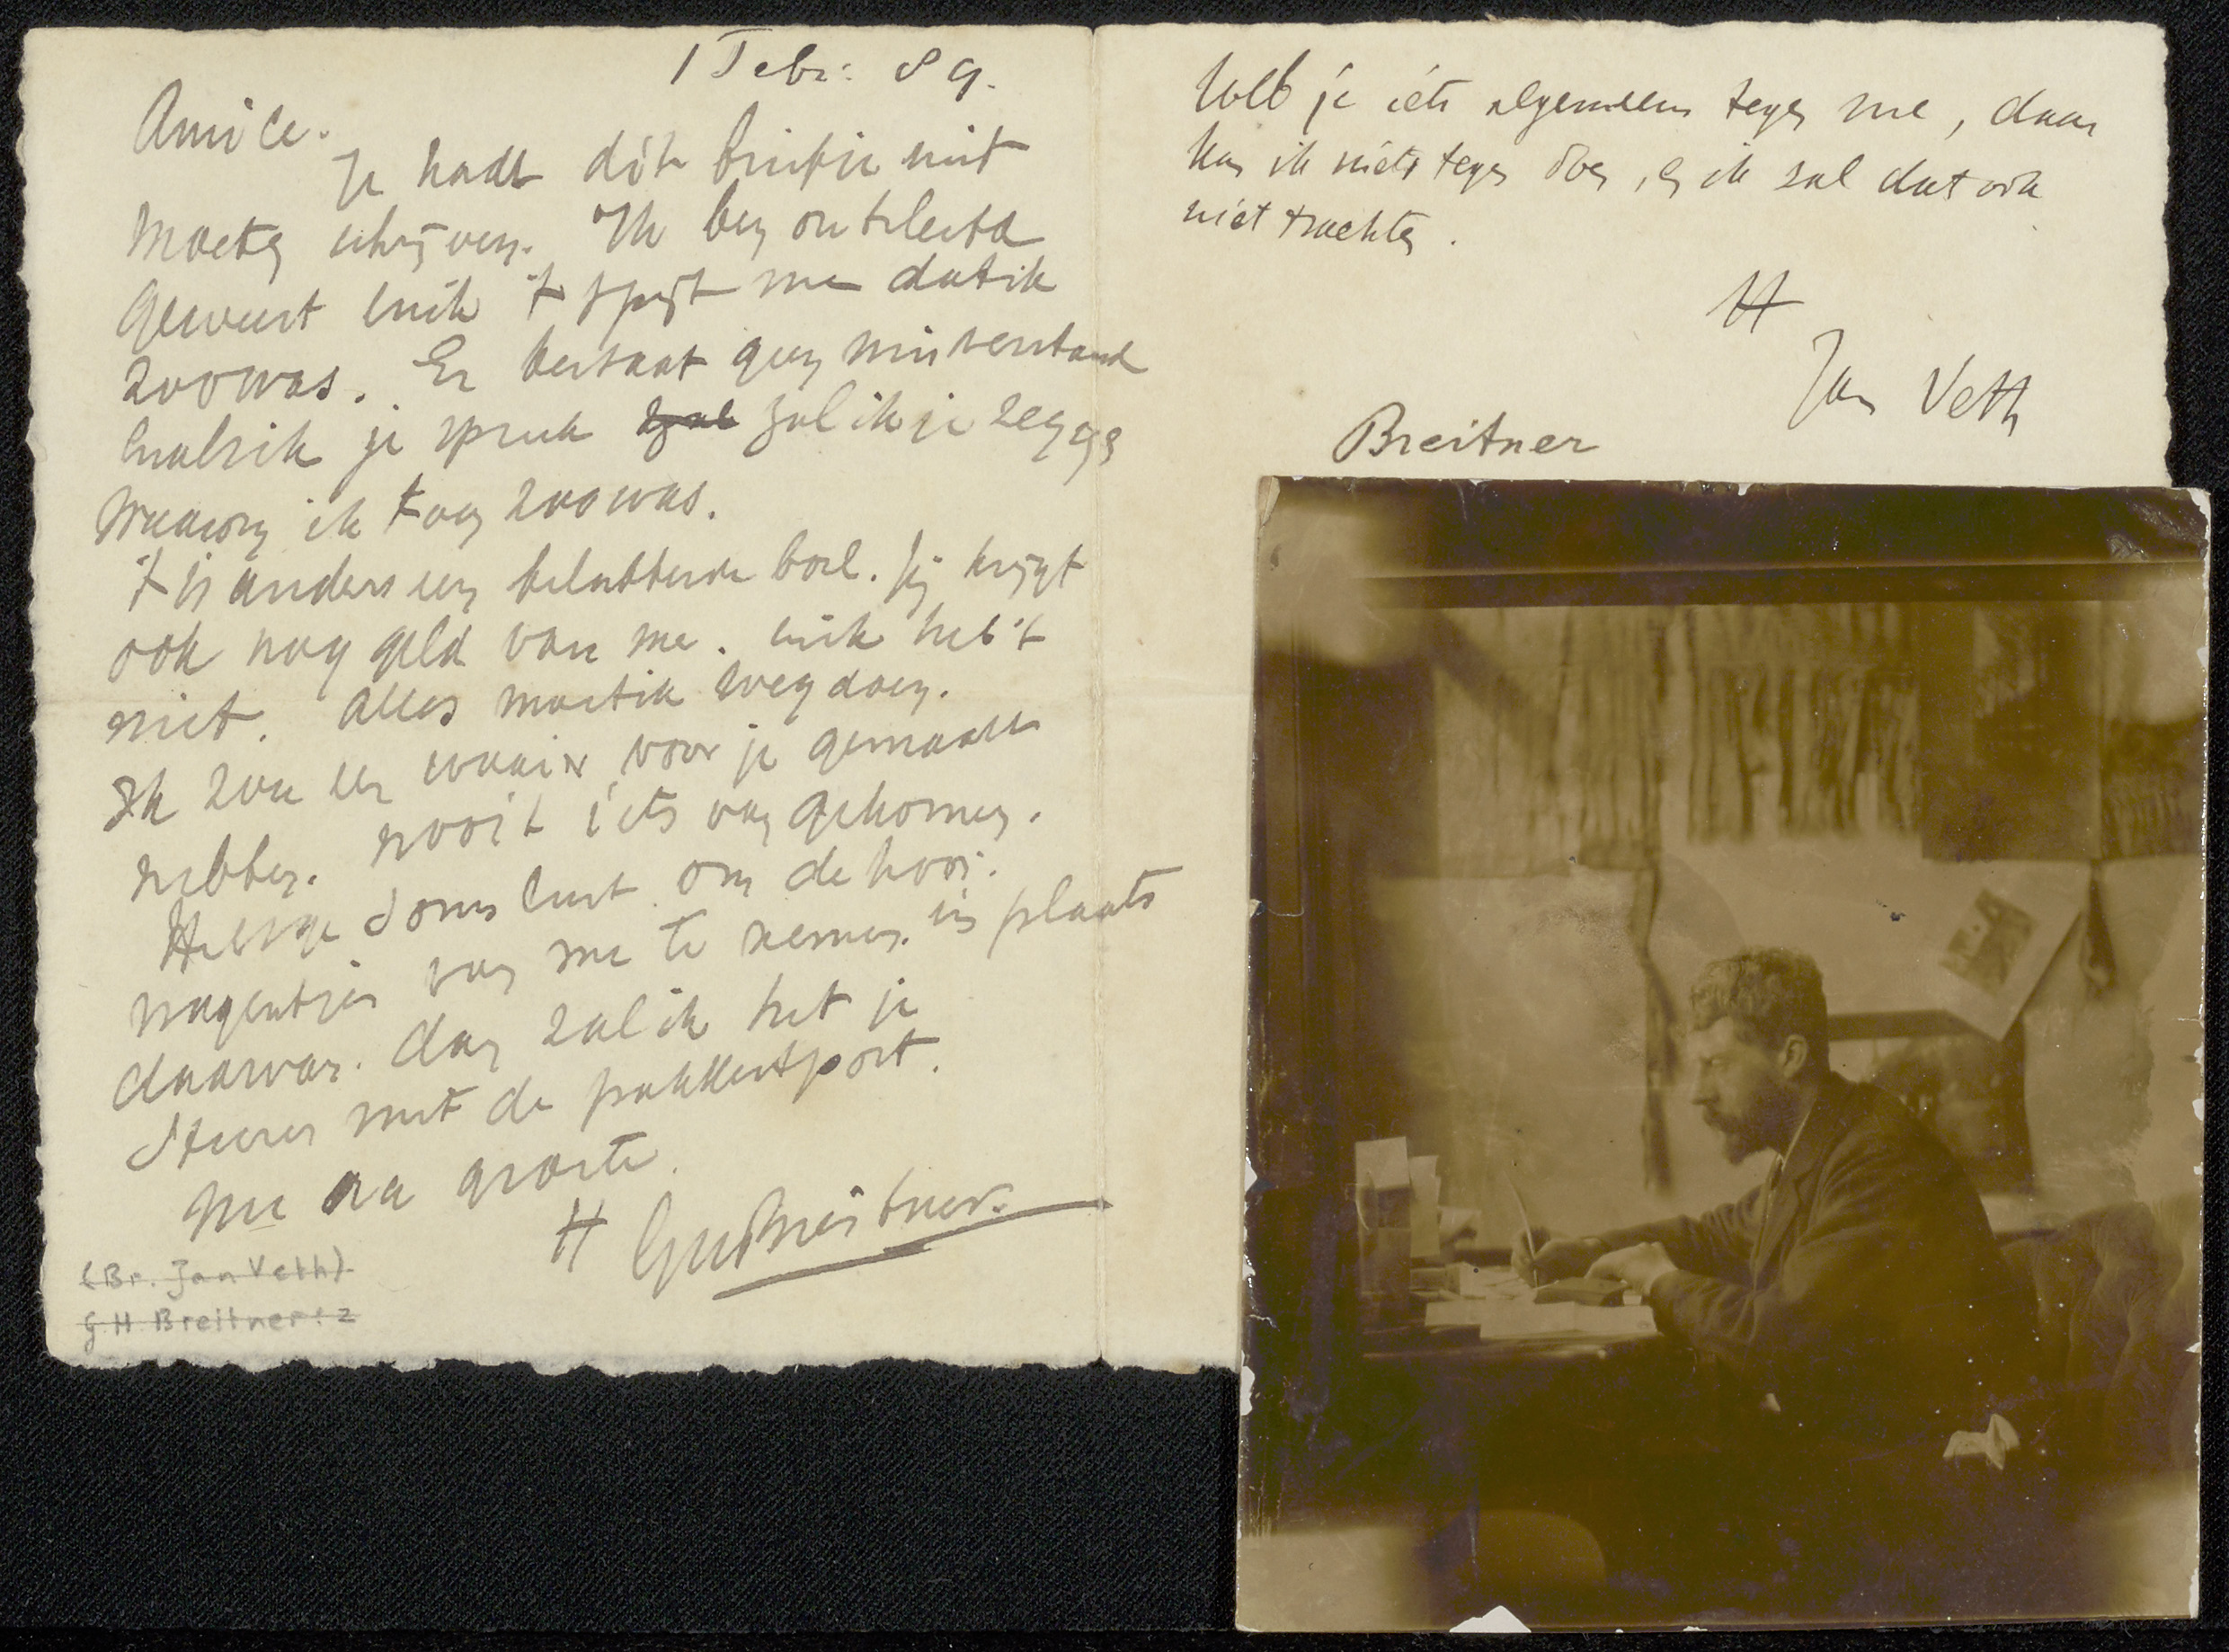 1 Febr: 89.
Amice.
Je hadt dit briefje niet
moeten schrijven. Ik ben ontsteld
geweest en ik 't spijt me dat ik
zoo was. Er bestaat geen misverstand
en als ik je spreek zal zal ik je zeggen
waarom ik toen zoo was.
't is anders een belabberde boel. Jij krijgt
ook nog geld van me. en ik heb 't
niet. alles moet ik wegdoen.
Ik zou een waaier voor je gemaakt
hebben. nooit iets van gekomen.
Heb je soms lust om de hooi
wagentjes van me te nemen. in plaats
daarvan. dan zal ik het je
sturen met de pakketpost.
nu na groete.
tt GHBreitner.
(Br. Jan Veth)
G.H. Breitner: 2
Heb je iets algemeens tegen me, daar
kan ik niets tegen doen, en ik zal dat ook
niet trachten.
tt
Jan Veth
Breitner